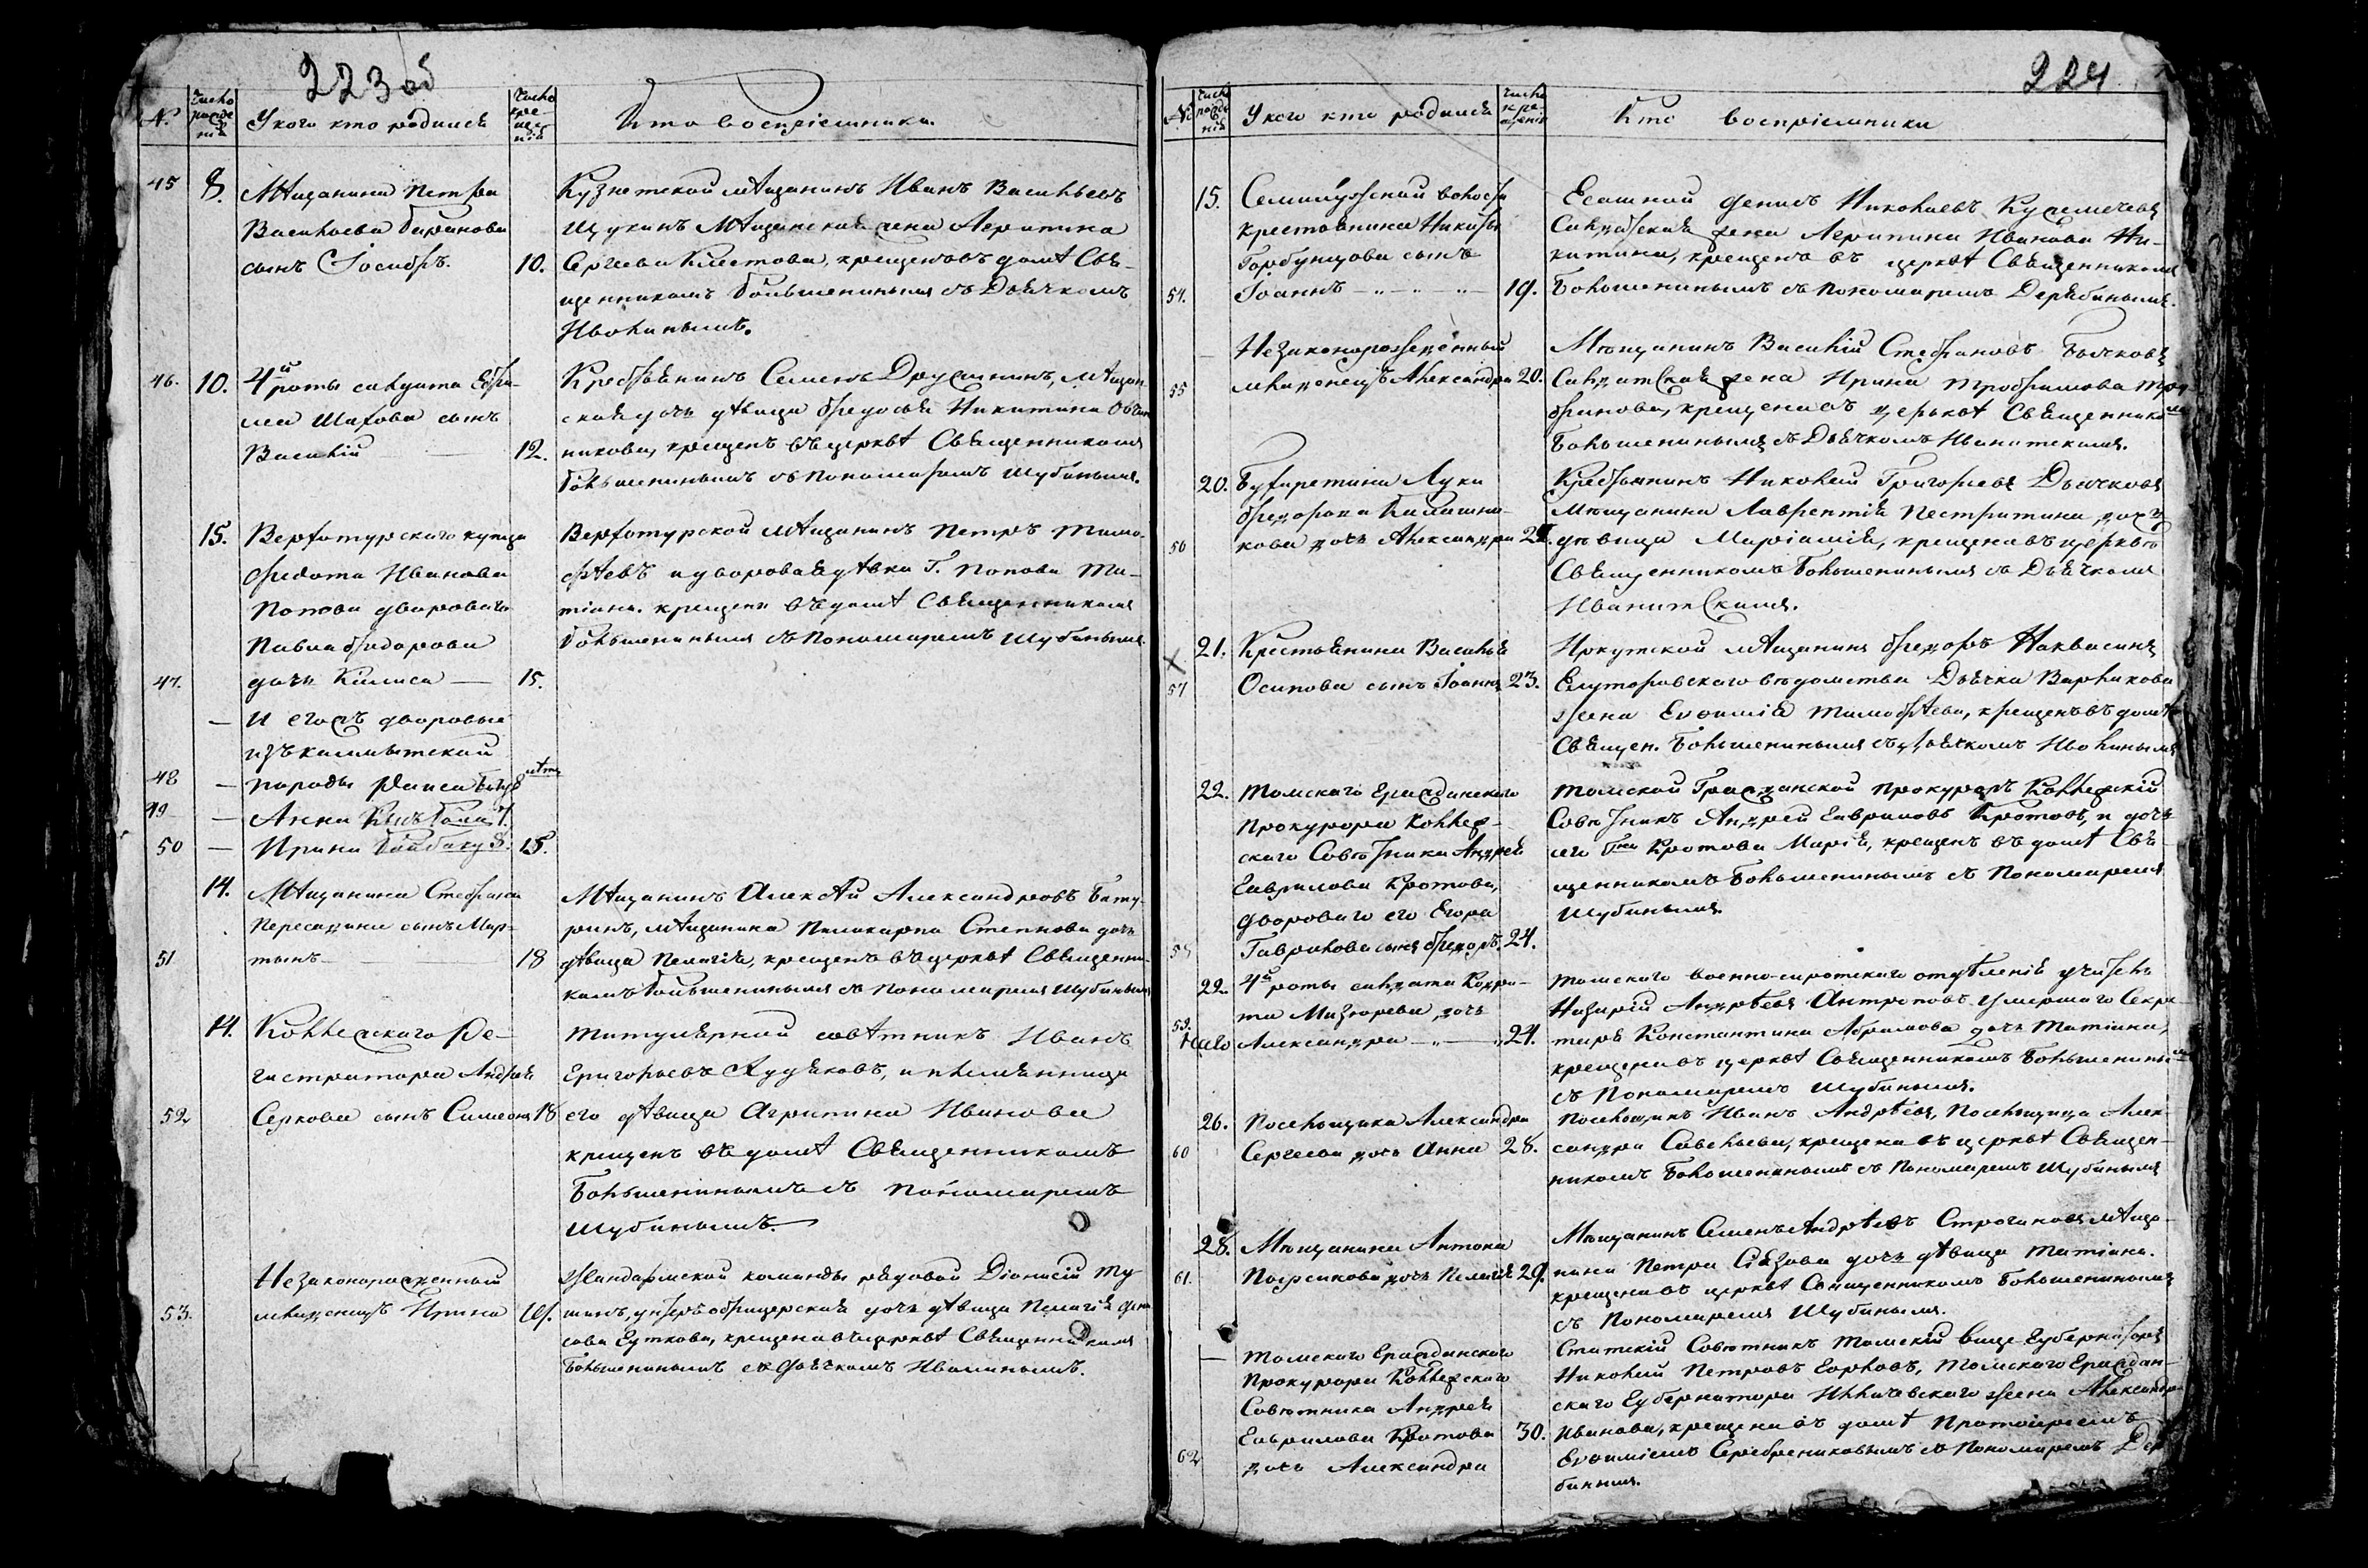 223 об
№ Число рожденія У кого кто родился Число крещенія Кто воспріемники.
45 8. Мѣщанина Петра
Васильева Баранова
сынъ Іосифъ. 10.
Кузнетской мѣщанинъ Иванъ Васильевъ
Щукинъ Мѣщанская жена Агрипина
Сергѣева Клестова, крещенъ въ домѣ Свя-
щенникомъ Большенинымъ съ Дьячкомъ
Иволинымъ.
46. 10. 4й роты солдата Ефи-
ма Шахова сынъ
Василій 12.
Крестьянинъ Семенъ Дружининъ, мѣщан
ская дочь дѣвица Федосья Никитина Овчин
никова, крещенъ въ церквѣ Священникомъ
Большенинымъ съ Пономаремъ Шубинымъ.
15. Верхотурскаго купца
Федота Иванова
Попова двороваго
Павла Федорова
47. дочь Калиса — 15.
Верхотурской мѣщанинъ Петръ Тимо-
фѣевъ и дворовая дѣвка Г. Попова Та-
тіана. крещена въ домѣ Священникомъ
Большенинымъ съ Пономаремъ Шубинымъ.
— И его жъ дворовые
изъ калмытской
48 — породы Раиса 8 лѣтъ
49 — Анна 7.
50 — Ирина 8. 15.
14. Мѣщанина Стефана
Пересадина сынъ Мар-
51 тынъ 18
Мѣщанинъ Алексѣй Александровъ Бату-
ринъ, мѣщанина Поликарпа Степнова дочь
дѣвица Пелагія, крещенъ въ церквѣ Священни-
комъ Большенинымъ съ Пономаремъ Шубинымъ
14. Коллежскаго Ре-
гистратора Андрея
52 Серкова сынъ Симеонъ 18
Титулярной совѣтникъ Иванъ
Григорьевъ Худяковъ, и племянница
его дѣвица Агрипина Иванова
крещенъ въ домѣ Священникомъ
Большенинымъ съ Пономаремъ
Шубинымъ.
Незаконорожденный
53. младенецъ Ирина
Жандармской команды рядовой Діонисій Ту
шинъ, унтеръ офицерская дочь дѣвица Пелагія
сова Гуткова, крещена въ церквѣ Священникомъ
Большенинымъ съ Дьячкомъ Иволинымъ.
224
№ Число рожденія У кого кто родился Число крещенія Кто воспріемники
15. Семилужской волости
крестьянина Никиты
Горбунцова сынъ
54. Іоаннъ — 19.
Есашной Денисъ Николаевъ
Солдатская жена Агрипина Иванова Ни-
китина, крещенъ въ церквѣ Священникомъ
Большенинымъ съ Пономаремъ Дерябинымъ.
— Незаконорожденный
55 младенецъ Александра 20.
Мѣщанинъ Василій Стефановъ Бычковъ
Солдатская жена Ирина Трофимова Тро
фимова, крещена въ церквѣ Священникомъ
Большенинымъ съ Дьячкомъ Иваницкимъ.
20. Бухаретина Луки
Федорова Калашни-
56 кова дочь Александра
Крестьянинъ Николай Григорьевъ Дьячковъ
Мѣщанина Лаврентія Пестрятина дочь
дѣвица Маріамія, крещена въ церквѣ
Священникомъ Большенинымъ съ Дьячкомъ
Иваницкимъ.
21. Крестьянина Василья
57 Осипова сынъ Іоаннъ 23.
Иркутской мѣщанинъ Федоръ Наквасинъ
Ялуторовскаго вѣдомства Дьячка Варлакова
жена Евфимія Тимофѣева, крещенъ въ домѣ
Священ. Большенинымъ съ Дьячкомъ Иволинымъ
22. Томскаго Гражданскаго
Прокурора Коллеж-
скаго Совѣтника Андрея
Гаврилова Кротова,
двороваго его Егора
58 Гаврилова сынъ Федоръ. 24.
Томской Гражданской Прокуроръ Коллежскій
Совѣтникъ Андрей Гавриловъ Кротовъ, и дочь
его Кротова Марія, крещенъ въ домѣ Свя-
щенникомъ Большенинымъ съ Пономаремъ
Шубинымъ.
22. 4й роты солдата Кодра-
та Мизюрева дочь
59. Александра — 24.
Томскаго военно-сиротскаго отдѣленія учитель
Назарій Андрѣевъ Антроповъ умершаго Секре-
таря Константина Абрамова дочь Татіана,
крещена въ церквѣ Священникомъ Большенинымъ
съ Пономаремъ Шубинымъ.
26. Посельщика Александра
60 Сергѣева дочь Анна 28.
Посельщикъ Иванъ Андрѣевъ, Посельщица Алек-
сандра Савельева, крещена въ церквѣ Священ-
никомъ Большенинымъ съ Пономаремъ Шубинымъ
28. Мѣщанина Антона
61. дочь Пелагія 29.
Мѣщанинъ Семенъ Андрѣевъ Строгановъ мѣща-
нина Петра Сѣзова дочь дѣвица Татіана.
крещена въ церквѣ Священникомъ Большенинымъ
съ Пономаремъ Шубинымъ.
— Томскаго Гражданскаго
Прокурора Коллежскаго
Совѣтника Андрея
Гаврилова Кротова 30.
62 дочь Александра
Статскій Совѣтникъ Томскій Вице-Губернаторъ
Николай Петровъ Горловъ, Томскаго Граждан-
скаго Губернатора Илличевскаго жена Александра
Иванова, крещена въ домѣ Протоіреемъ
Евфиміемъ Серебрениковымъ съ Пономаремъ Деря
бинымъ.